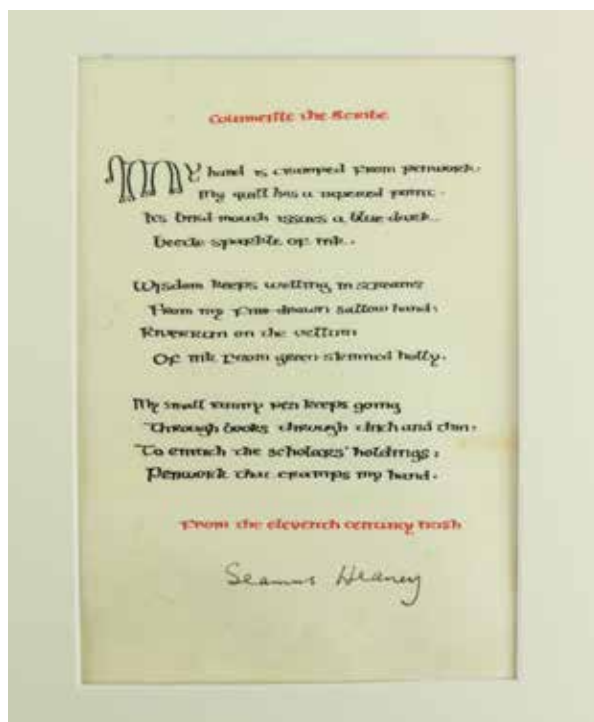 Columcille the Scribe
My hand is cramped from penwork.
My quill has a tapered point.
Its bird mouth issues a blue-dark
Beetle sparkle of ink.
Wisdom keeps welling in streams
From my fine drawn sallow hand:
Riverrun on the vellum
Of ink from green skinned holly.
My small runny pen keeps going
Through books through thick and thin
To enrich the scholars' holdings:
Penwork that cramps my hand.
From the eleventh century Irish
Seamus Heaney